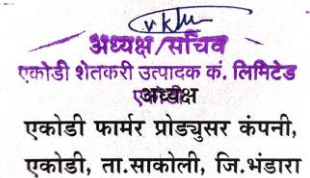 अध्यक्ष/सचिव
एकोडी शेतकरी उत्पादक कं. लिमिटेड
अध्यक्ष
एकोडी फार्मर प्रोड्युसर कंपनी,
एकोडी, ता.साकोली, जि.भंडारा